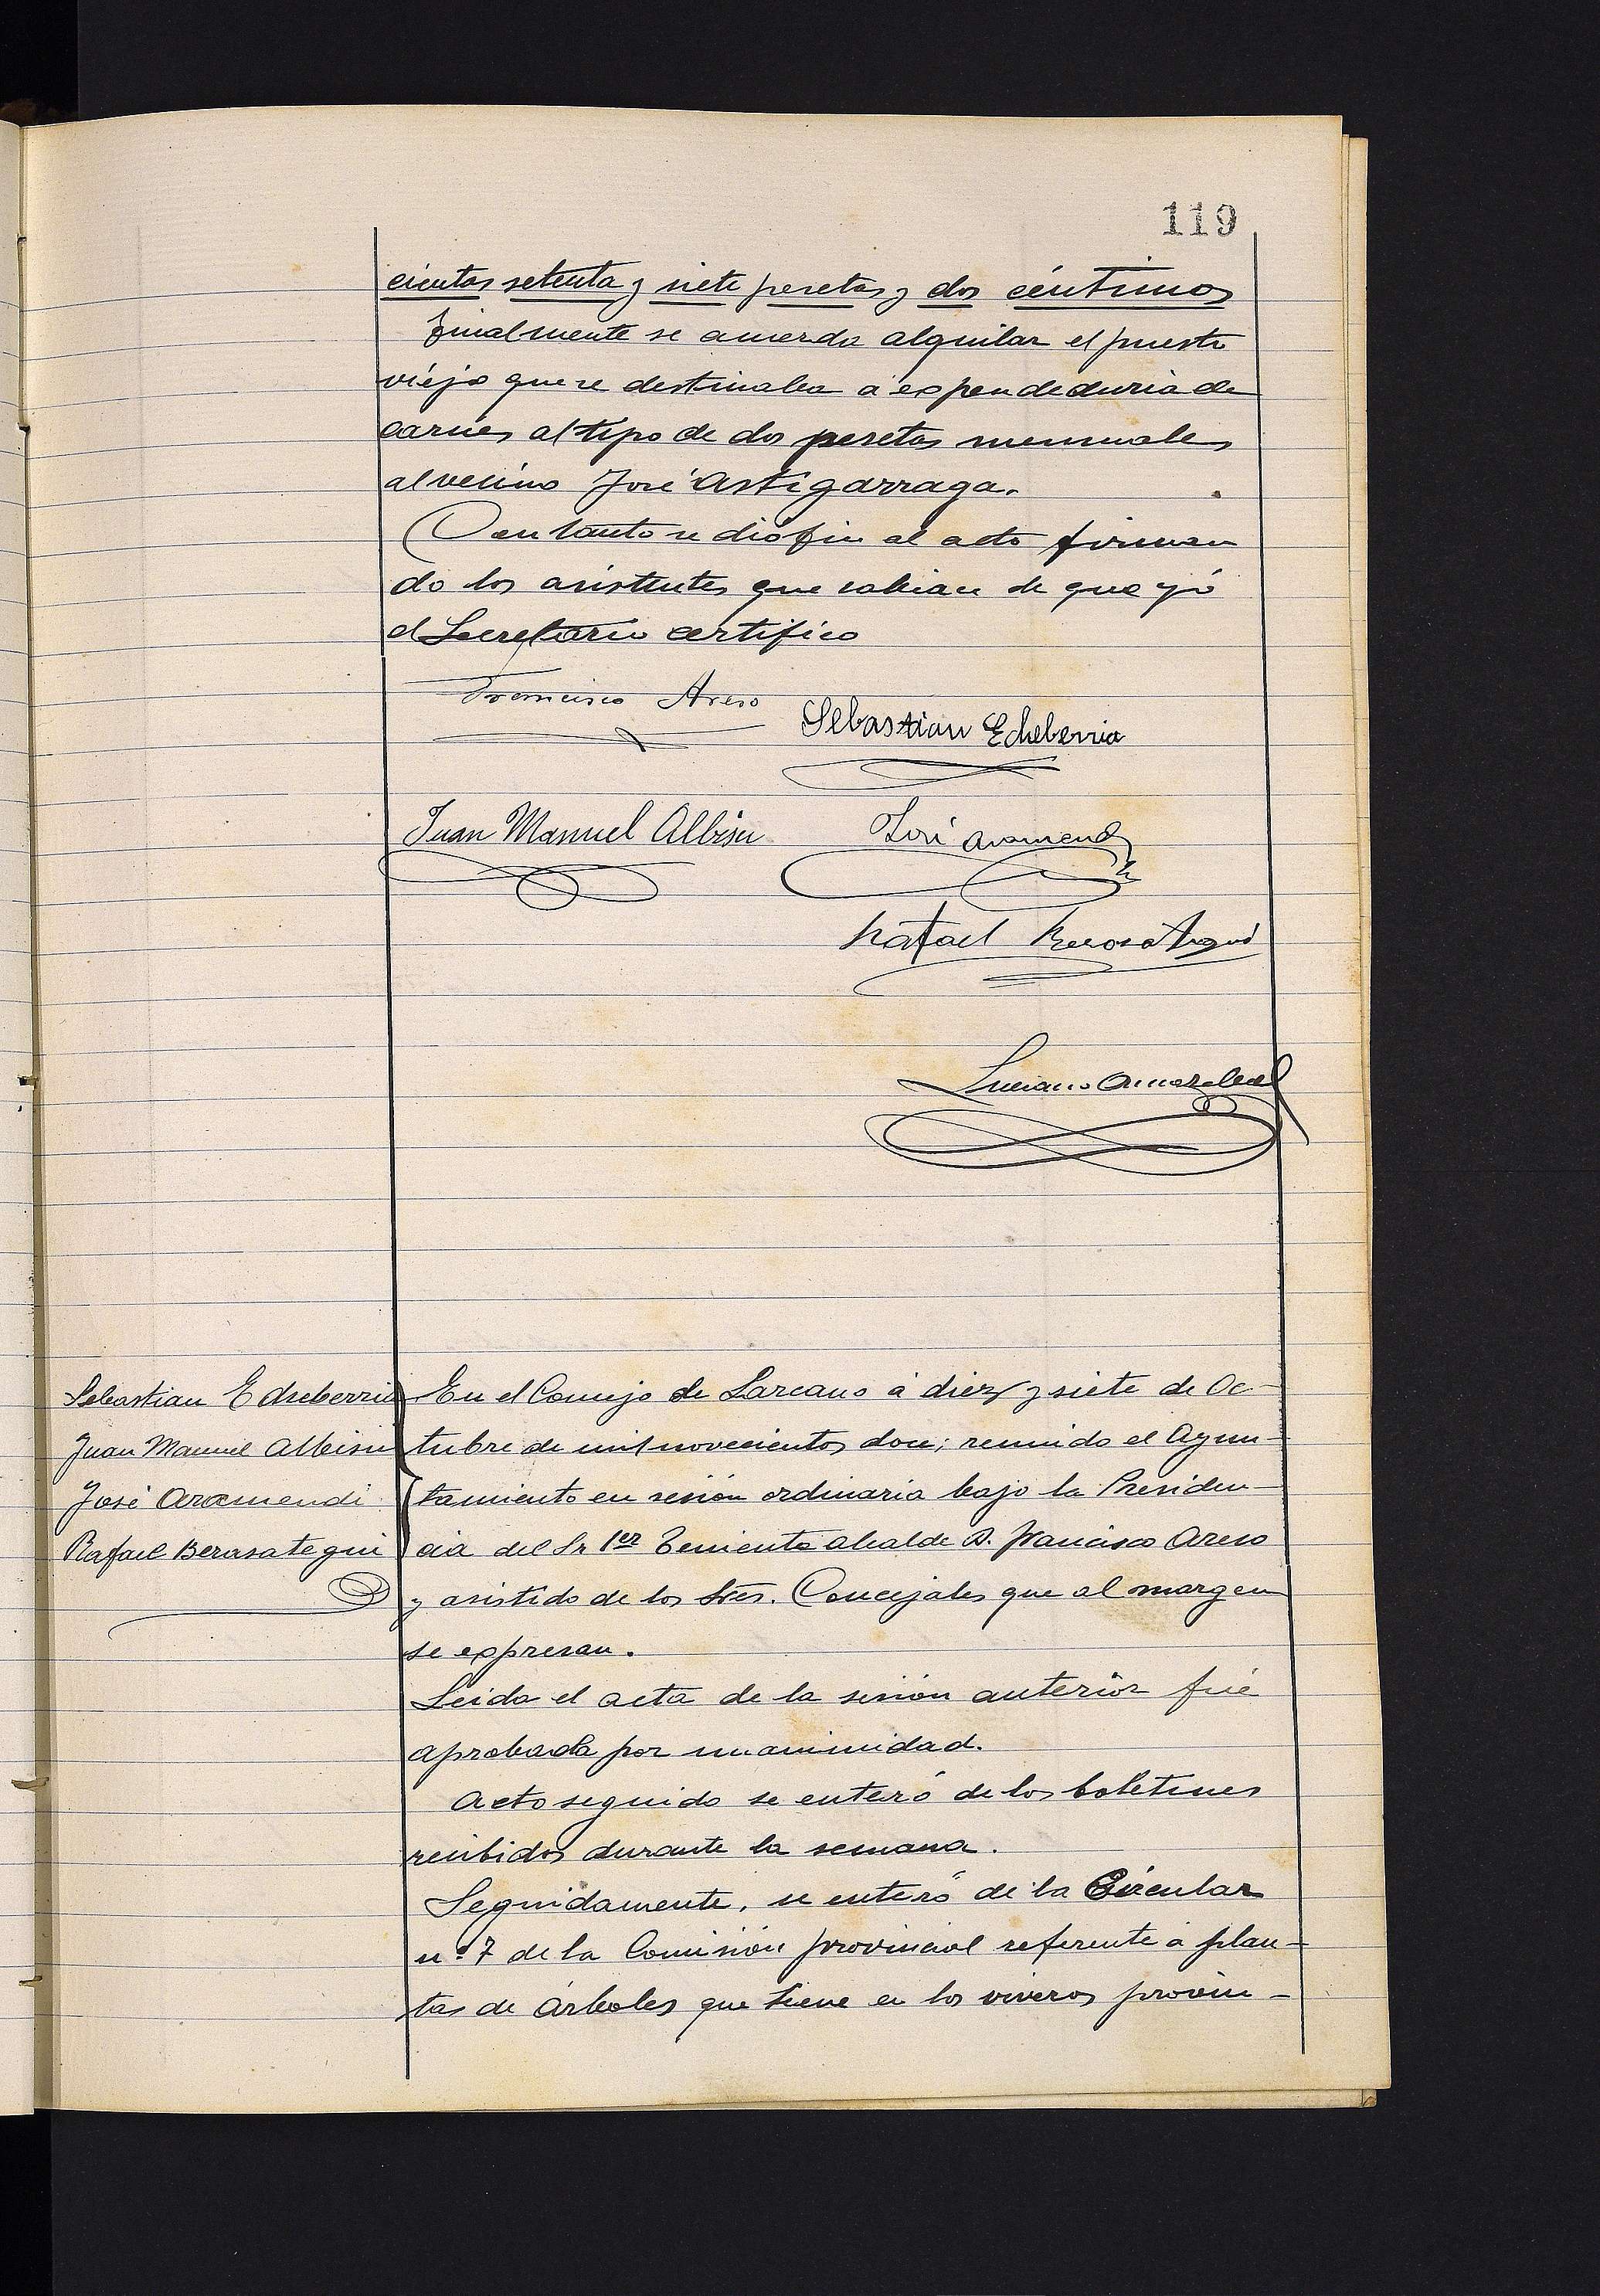 119
cientas setenta y siete pesetas y dos céntimos
Finalmente se acuerda alquilar el puesto
viejo que se destinaba á expendeduria de
carnes al tipo de dos pesetas mensuales
al vecino José Astigarraga.
Con tanto se dió fin al acto firman
do los asistentes que sabian de que yó
el Secretario certifico
Francisco Areso
Sebastian Echeberria
Juan Manuel Albisu
José Aramendi
Rafael Berasategui
Luciano
Sebastian Echeberria
Juan Manuel Albisu
José Aramendi
Rafael Berasategui
En el Concejo de Lazcano á diez y siete de Oc-
tubre de mil novecientos doce; reunido el Ayun-
tamiento en sesión ordinaria bajo la Presiden-
cia del Sr 1er Teniente alcalde D. Francisco Areso
y asistido de los Sres. Concejales que al margen
se expresan.
Leida el acta de la sesión anterior fué
aprobada por unanimidad.
Acto seguido se enteró de los boletines
recibidos durante la semana.
Seguidamente, se enteró de la Circular
nº 7 de la Comisión provincial referente á plan-
tas de árboles que tiene en los viveros provin-